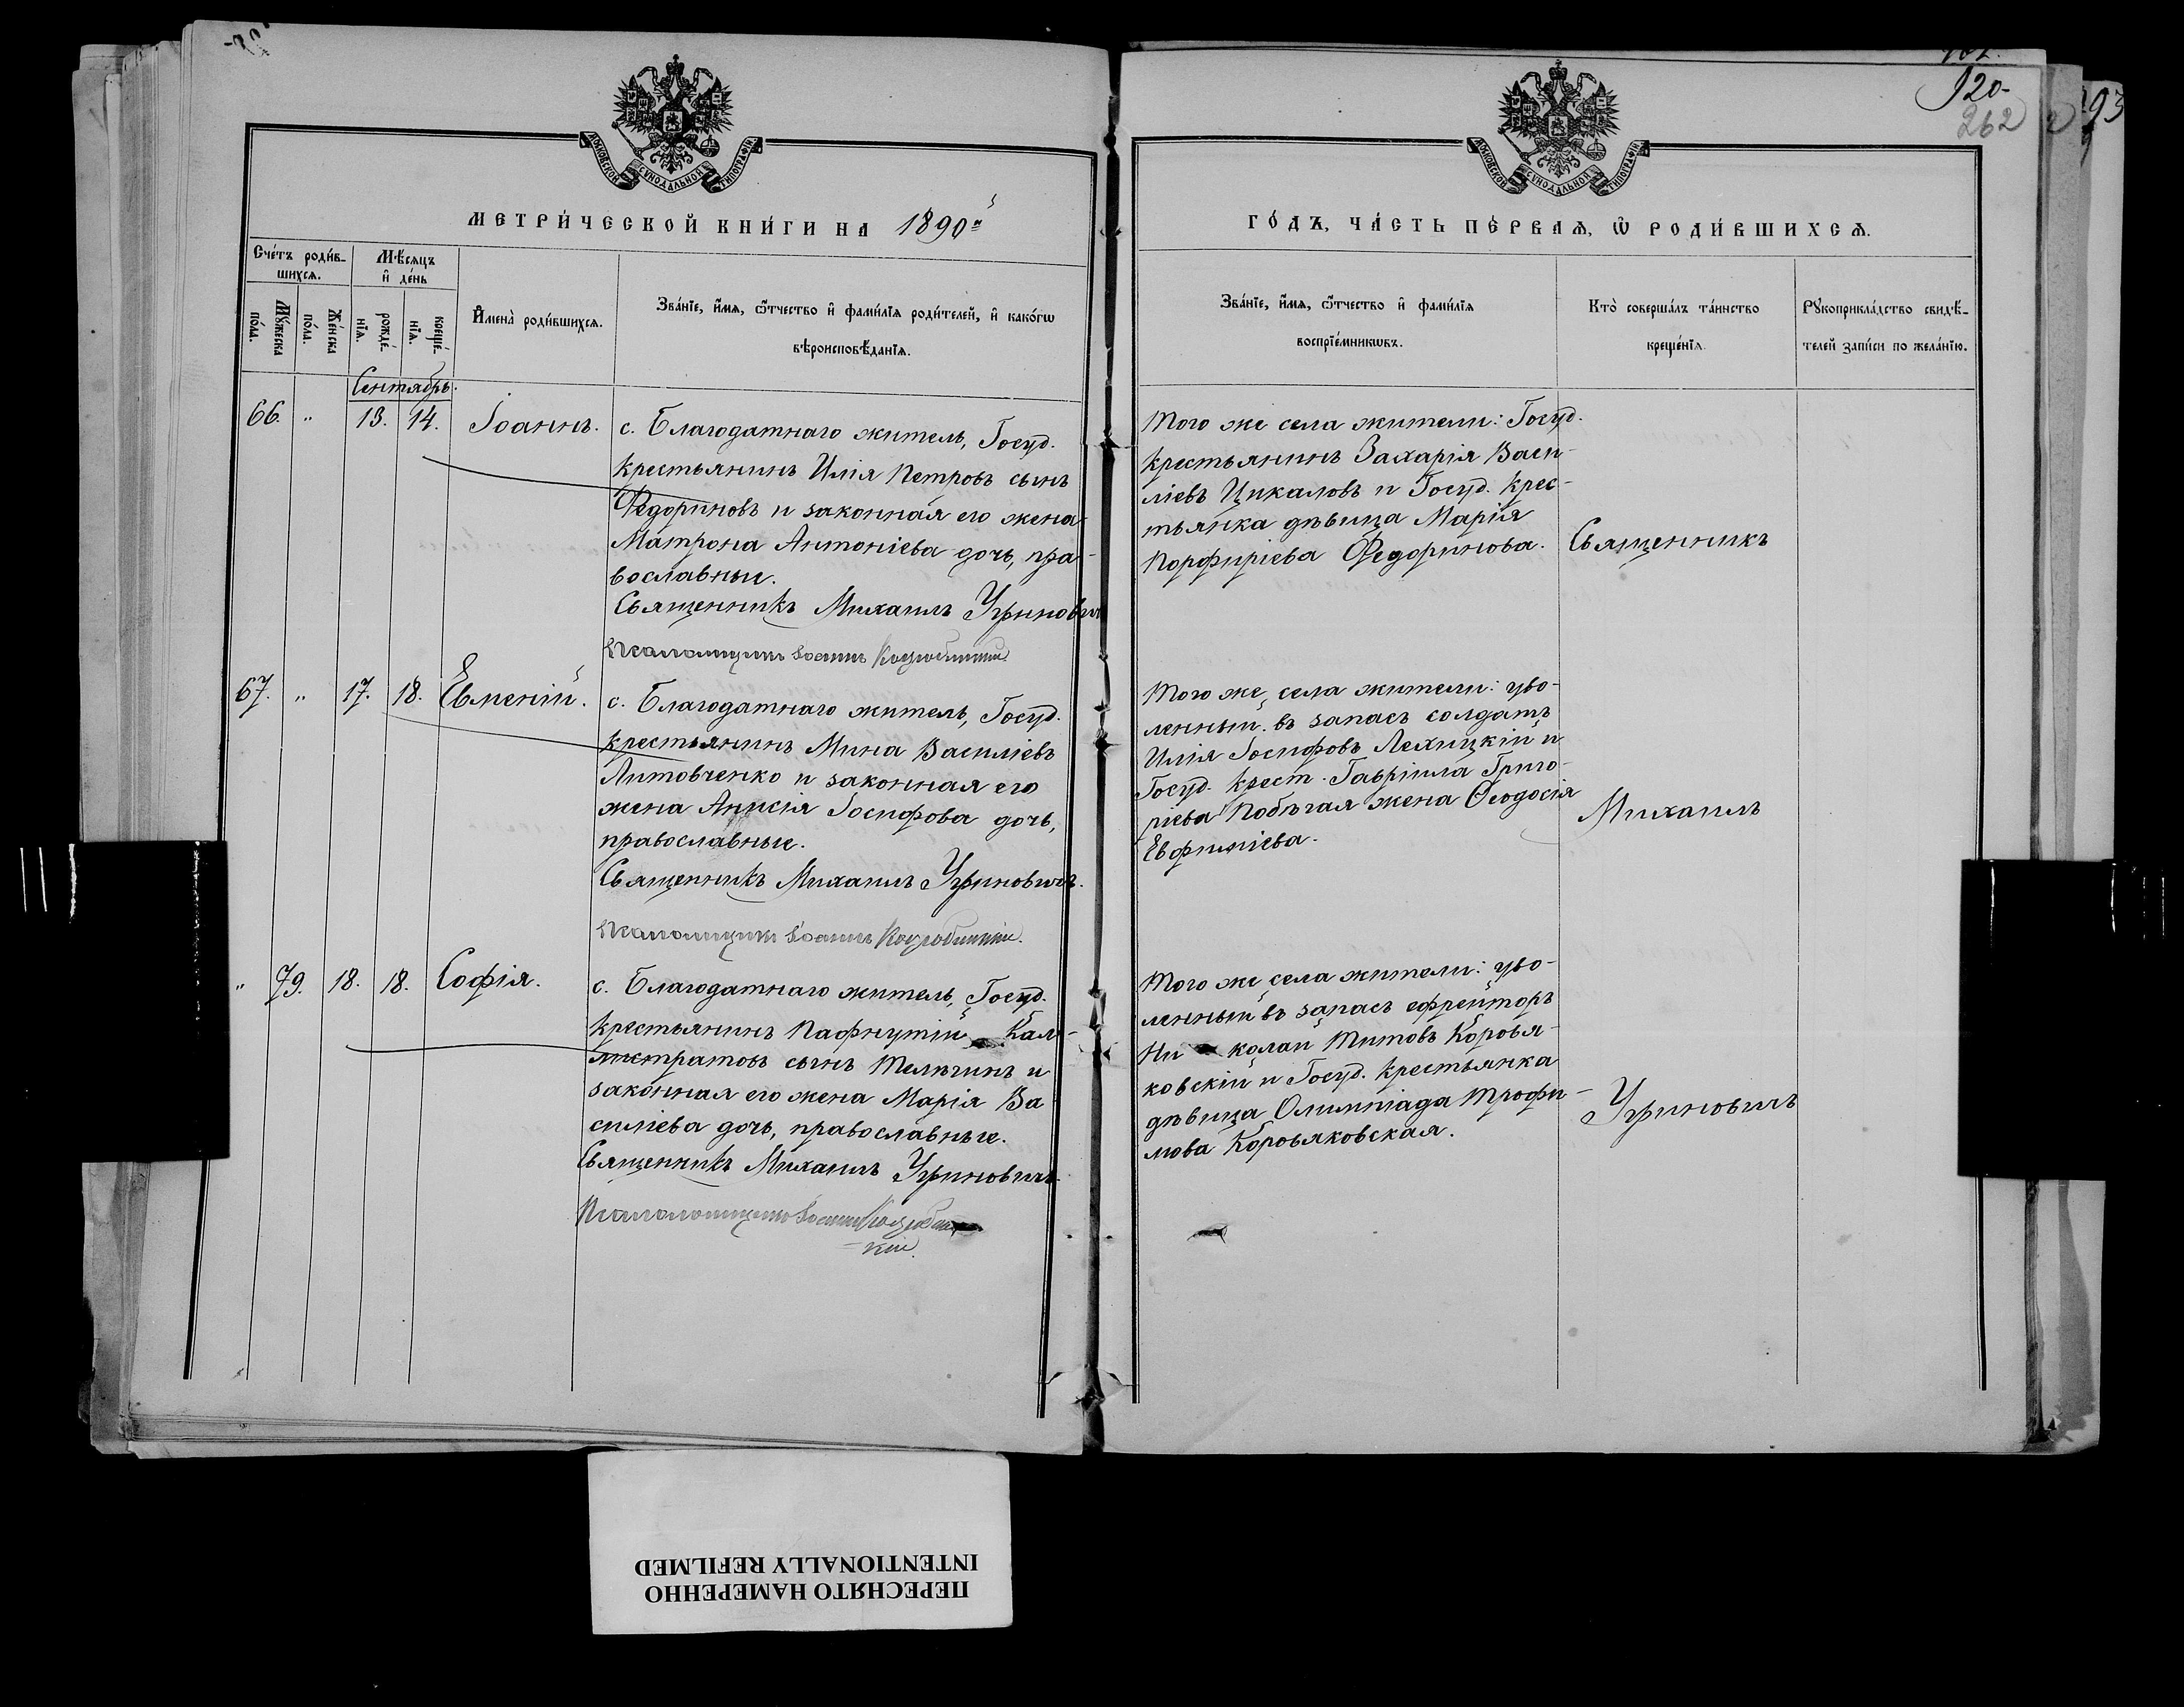 МОСКОВСКОЙ СУНОДАЛЬНОЙ ТИПОГРАФІИ
МЕТРИ́ЧЕСКОЙ КНИ́ГИ НА 1890й
Сче́тъ роди́в-
шихсѧ.
Мѣ́сѧцъ
и҆ де́нь
Мꙋ́жеска
по́ла.
Же́нска
по́ла.
рожде́-
нїѧ.
креще́-
нїѧ.
И҆мена̀ роди́вшихсѧ.
Зва́нїе, и҆́мѧ, ѻ҆́тчество и҆ фами́лїѧ роди́телей, и҆ како́гѡ
вѣроисповѣ́данїѧ.
Сентябрь.
66. " 13. 14. Іоаннъ.
с. Благодатнаго житель, Госуд.
крестьянинъ Илія Петровъ сынъ
Федориновъ и законная его жена
Матрона Антоніева дочь, пра-
вославные.
Священникъ Михаилъ Угриновичъ
Псаломщикъ Іоаннъ
67. " 17. 18. Евменій.
с. Благодатнаго житель, Госуд.
крестьянинъ Мина Василіевъ
Литовченко и законная его
жена Анисія Іосифова дочь,
православные.
Священникъ Михаилъ Угриновичъ.
Псаломщикъ Іоаннъ
" 79. 18. 18. Софія.
с. Благодатнаго житель, Госуд.
крестьянинъ Пафнутій Кал-
листратовъ сынъ Тельгинъ и
законная его жена Марія Ва-
силіева дочь, православные.
Священникъ Михаилъ Угриновичъ.
Псаломщикъ Іоаннъ
кій.
120-
262
93
МОСКОВСКОЙ СУНОДАЛЬНОЙ ТИПОГРАФІИ
ГО́ДЪ, ЧА́СТЬ ПЕ́РВАѦ, Ѡ҆ РОДИ́ВШИХСѦ.
Зва́нїе, и҆́мѧ, ѻ҆́тчество и҆ фами́лїѧ
воспрїе́мникѡвъ.
Кто̀ соверша́лъ та́инство
креще́нїѧ.
Рꙋкоприкла́дство свидѣ́-
телей за́писи по жела́нїю.
Того же села жители: Госуд.
крестьянинъ Захарія Васи-
ліевъ Цикаловъ и Госуд. крес-
тьянка дѣвица Марія
Порфиріева Федоринова.
Священникъ
Того же села жители: уво-
ленный въ запасъ солдатъ
Илія Іосифовъ Лехицкій и
Госуд. крест. Гавріила Григо-
ріева Побѣгая жена Ѳеодосія
Евфиміева.
Михаилъ
Того же села жители: уво-
ленный въ запасъ ефрейторъ
Ни колай Титовъ Коровя-
ковскій и Госуд. крестьянка
дѣвица Олимпіада Трофи-
мова Коровяковская.
Угриновичъ
ПЕРЕСНЯТО НАМЕРЕННО
INTENTIONALLY REFILMED